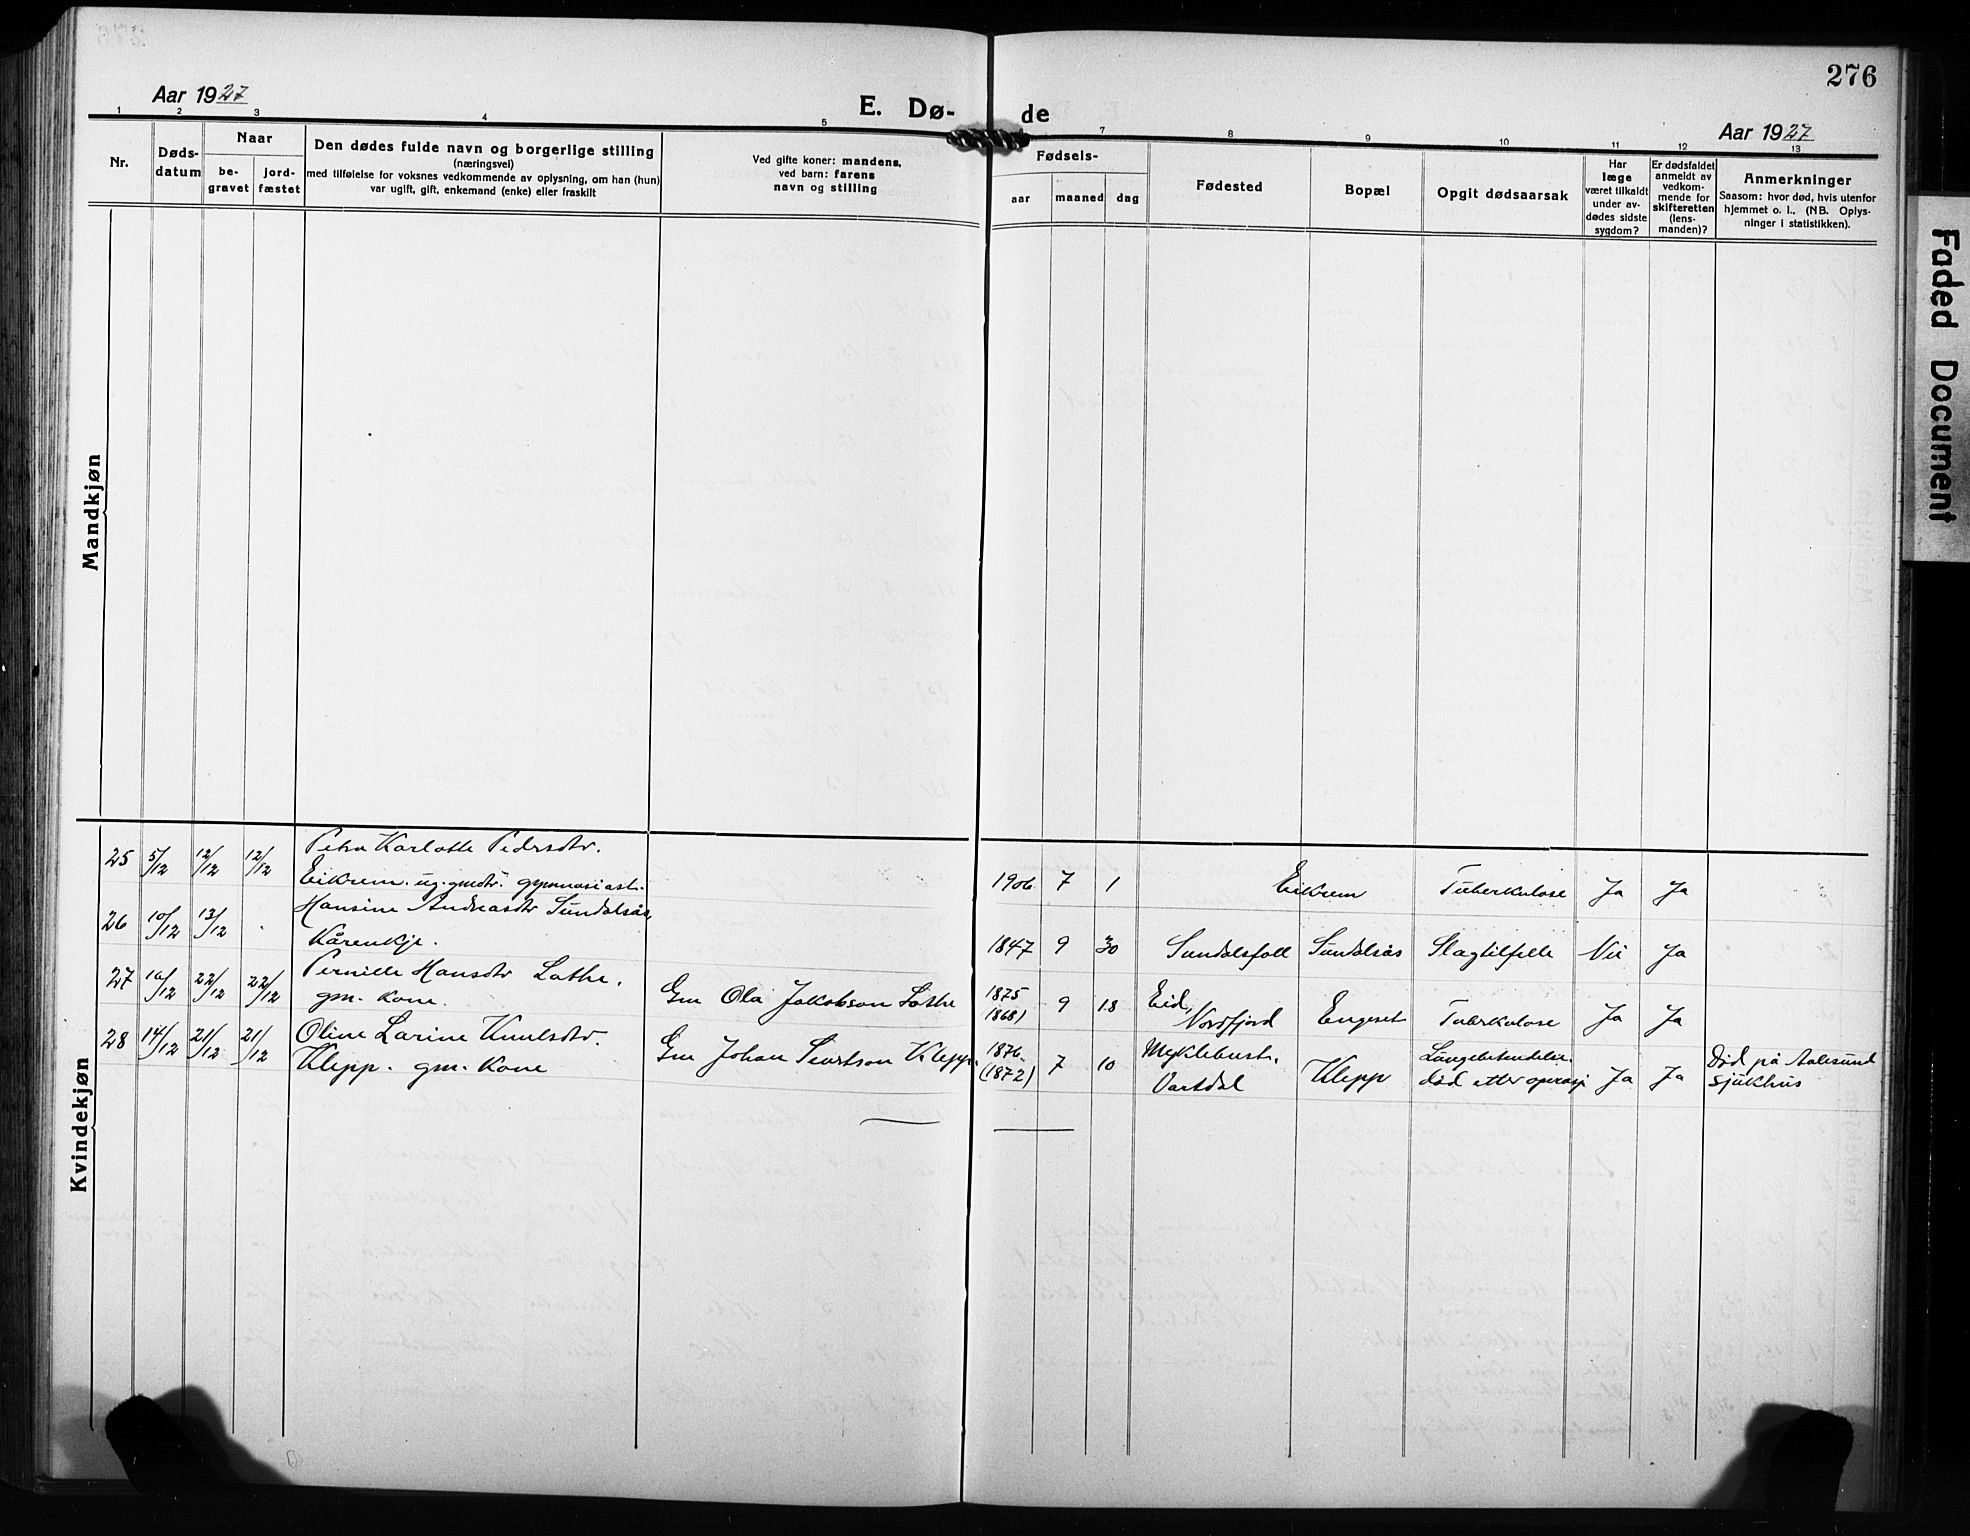 276
Aar 1927
E. Dø-
de
Aar 1927
1 2 3 4 5 7 8 9 10 11 12 13
Nr.
Døds-
datum
Naar
be-
gravet
jord-
fæstet
Den dødes fulde navn og borgerlige stilling
(næringsvei)
med tilføielse for voksnes vedkommende av oplysning, om han (hun)
var ugift, gift, enkemand (enke) eller fraskilt
Ved gifte koner: mandens,
ved barn: farens
navn og stilling
Fødsels-
aar
maaned
dag
Fødested
Bopæl
Opgit dødsaarsak
Har
læge
været tilkaldt
under av-
dødes sidste
sygdom?
Er dødsfaldet
anmeldt av
vedkom-
mende for
skifteretten
(lens-
manden)?
Anmerkninger
Saasom: hvor død, hvis utenfor
hjemmet o. l., (NB. Oplys-
ninger i statistikken).
Mandkjøn
Kvindekjøn
25 5/12 12/12 12/12 Petra Karlotte Pedersdtr.
Eikrem. ug. gmdtr. gymnasiast. 1906 7 1 Eikrem Tuberkulose Ja Ja
26 10/12 13/12 Hansine Andreasdtr Sundalsås,
Kårenkje. 1847 9 30 Sundalsfoll Sundalsås Slagtilfelle Nei Ja
27 10/12 22/12 22/12 Pernille Hansdtr Lothe.
gm. kone. Gm Ola Jakobson Lothe 1875
1868) 9 18 Eid,
Nordfjord Engeset Tuberkulose Ja Ja
28 14/12 21/12 21/12 Oline Larine Knutsdtr.
Klepp. gm. kone Gm Johan Sivertson Klepp. 1876
(1872) 7 10 Myklebust.
Vartdal Klepp Lungebetendelse.
død etter operasj Ja Ja Død på Aalesund
sjukhus
Faded Document